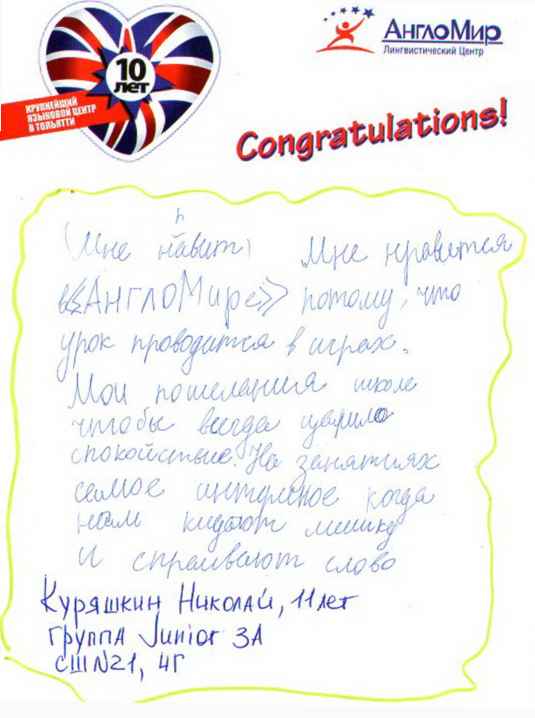 10
лет
КРУПНЕЙШИЙ
ЯЗЫКОВОЙ ЦЕНТР
В ТОЛЬЯТТИ
АнглоМир
Лингвистический Центр
Congratulations!
н
(Мне навит) Мне нравится
«АнглоМире» потому, что
урок проводится в играх.
Мои пошелания школе
чтобы всегда царило
спокойствие. На занятиях
самое интересное когда
нам кидают мишку
и спраивают слово
Куряшкин Николай, 11 лет
группа Junior 3А
СШ №21, 4Г